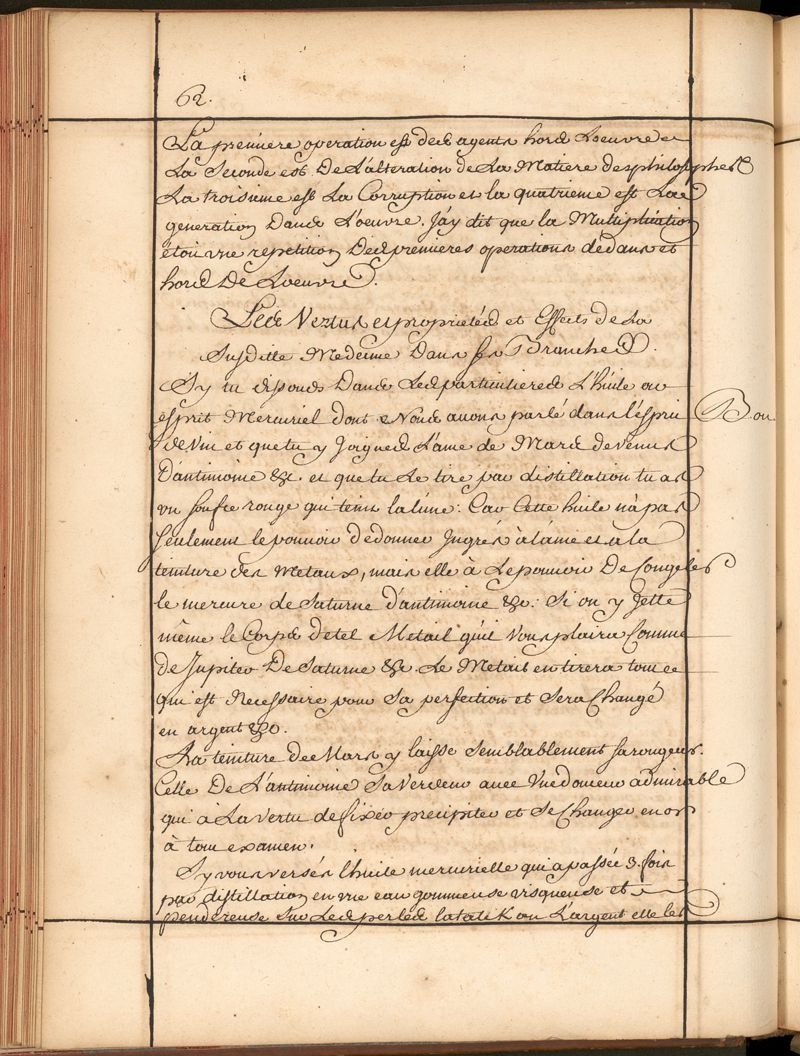 62.
La premiere operation est des agents hors L'oeuvre et
La Seconde est De L'alteration de La Matiere des philosophes
La troisieme est La Corruption et la quatrieme est La
generation Dans L'oeuvre. J'ay dit que la Multiplication
etoit vne repetition Des premieres operations dedans et
hors De Loeuvre.
Les Vertus et proprietés et Effects de La
Susditte Medecine Dans ses Branches.
Sy tu dissouds Dans Les particulieres L'huile ou
esprit Mercuriel dont Nous auons parlé dans l'esprit Bon
de Vin et que tu y Joignes L'ame de Mars de venus
D'antimoine &c. et que tu Le tire par distillation tu as
vn soufre rouge qui teint la lune: Car Cette huile n'a pas
seulement le pouuoir de donner Jngrés à l'ame et a la
teinture des Metaux, mais elle à Le pouuoir De Congeler
le mercure de Saturne d'antimoine &c. Si on y Jette
même le Corps de tel Metail qu'il Vous plaira Comme
de Jupiter De Saturne &c. Le Metail en tirera tout ce
qui est Necessaire pour Sa perfection et Sera Changé
en argent &c.
La teinture de Mars y laisse Semblablement sa rougeur.
Celle De L'antimoine Sa Verdeur auec Vne douceur admirable
qui à La vertu de fixer precipiter et Se Changer en or
à tout examen.
Sy vous versés l'huile mercurielle qui a passée 3. fois
par distillation en vne eau gommeuse visqueuse et
pendereuse sur Les perles la talk ou L'argent elle les